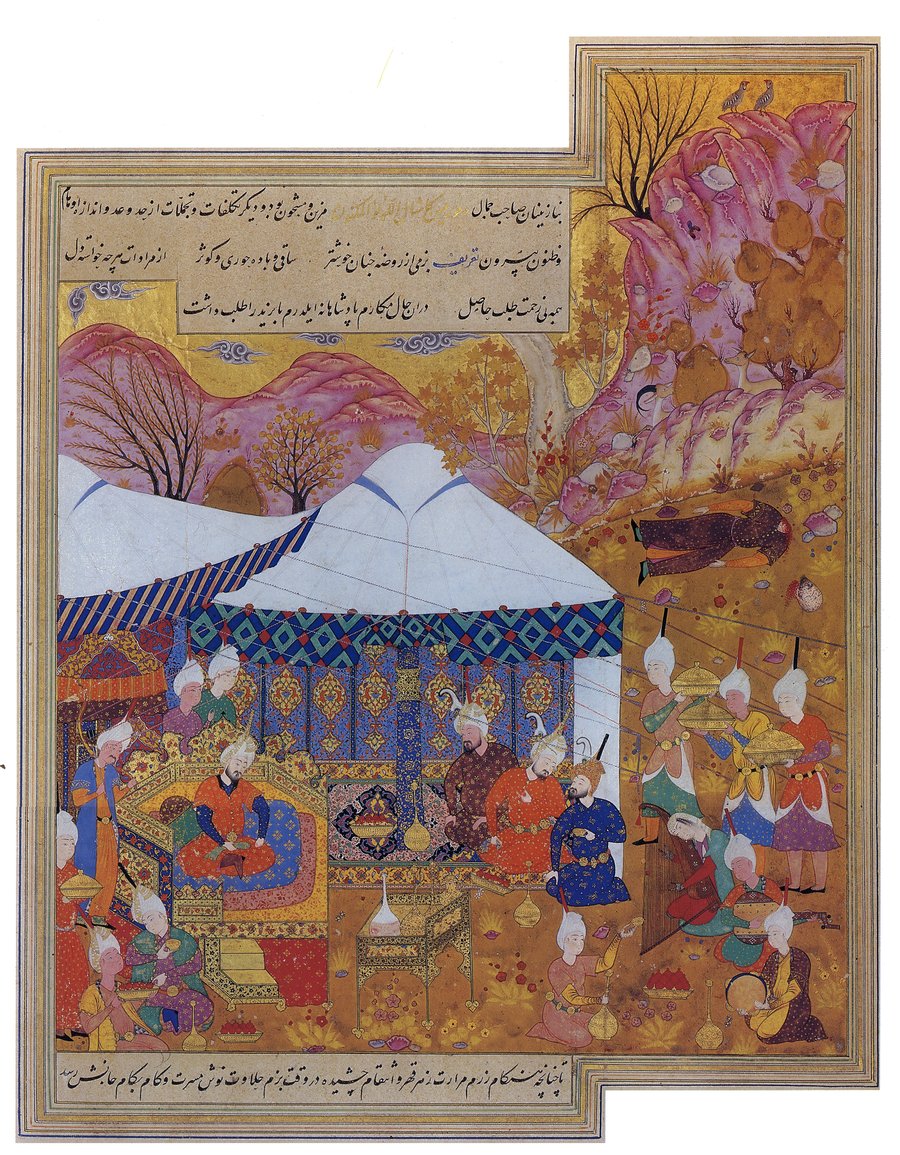 نازنینان صاحب جمال مزین و مشحون بود و دیگر تکلفات و تجملات از حد و عد و اندازه
و ظنون بیرون تعریف بزمی از روضهٔ جنان خوشتر ساقی و باده حوری و کوثر از مرادات هرچه خواسته دل
همه بی زحمت طلب حاصل در ان حال مکارم پادشاهانه ایلدرم بایزید را طلب داشت
تا چنانچه هنگام رزم مرارت زهر قهر و انتقام چشیده در وقت بزم حلاوت نوش مسرت و کام بکام جانش رسد